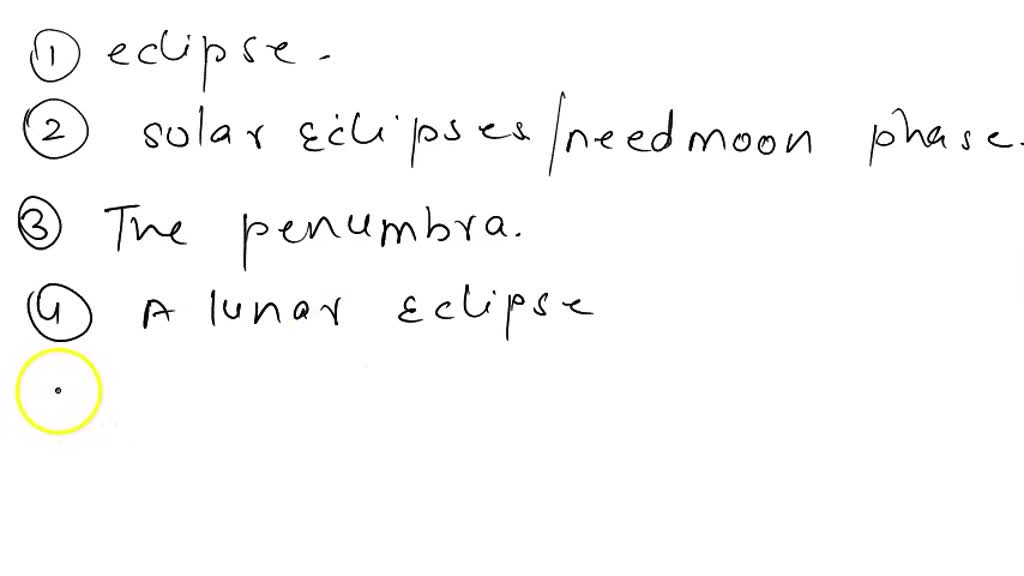 ① eclipse.
② solar Eclipses/needmoon phase.
③ The penumbra.
④ A lunar Eclipse